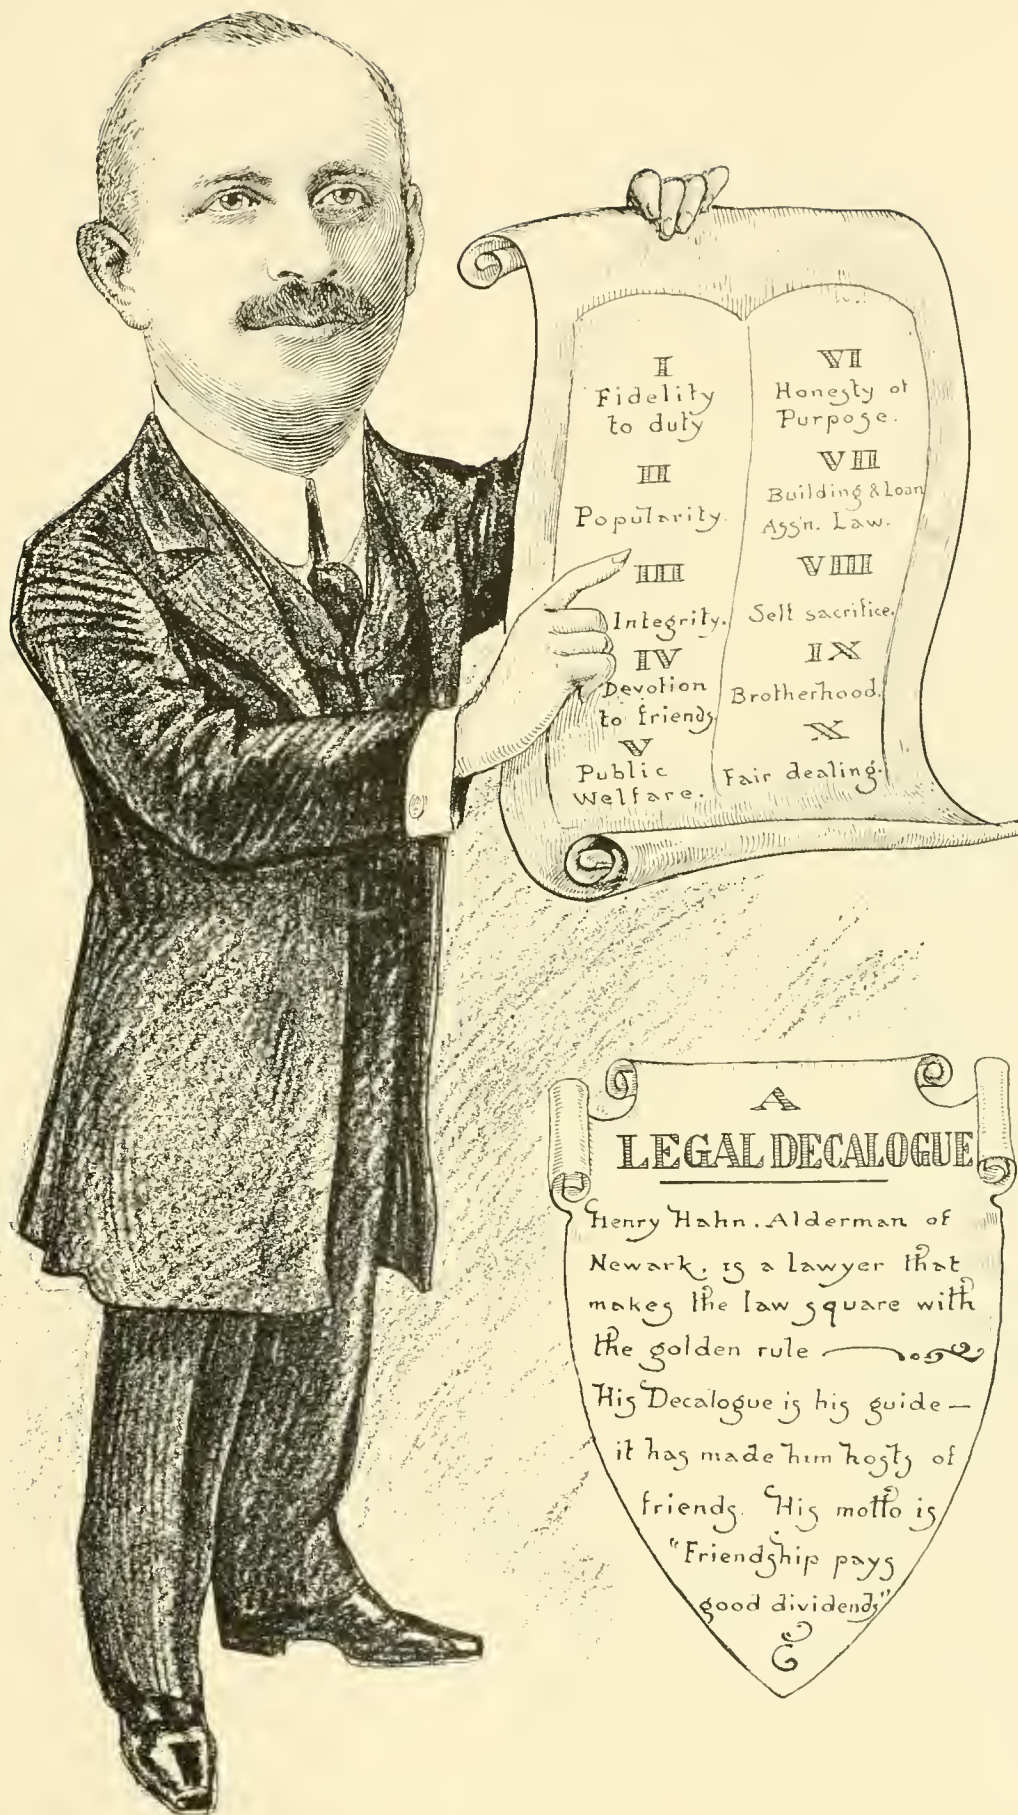 I
Fidelity
to duty
II
Popularity.
III
Integrity.
IV
Devotion
to friends
V
Public
Welfare.
VI
Honesty of
Purpose.
VII
Building & Loan
Ass'n. Law.
VIII
Self sacrifice.
IX
Brotherhood.
X
Fair dealing.
A
LEGAL DECALOGUE
Henry Hahn. Alderman of
Newark, is a lawyer that
makes the law square with
the golden rule
His Decalogue is his guide —
it has made him hosts of
friends. His motto is
"Friendship pays
good dividends"